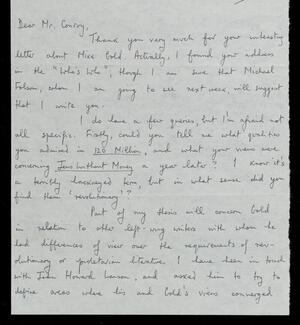 Dear Mr. Conroy,
Thank you very much for your interesting
letter about Mike Gold. Actually, I found your address
in the "Who's Who", though I am sure that Michael
Folsom, whom I am going to see next week, will suggest
that I write you.
I do have a few queries, but I'm afraid not
all specific. Firstly, could you tell me what qualities
you admired in 120 Million, and what your views were
concerning Jews Without Money a year later? I know it's
a terribly hackneyed term, but in what sense did you
find them 'revolutionary'?
Part of my thesis will concern Gold
in relation to other left-wing writers with whom he
had differences of view over the requirements of rev-
olutionary or proletarian literature. I have been in touch
with John Howard Lawson, and asked him to try to
define areas where his and Gold's views converged